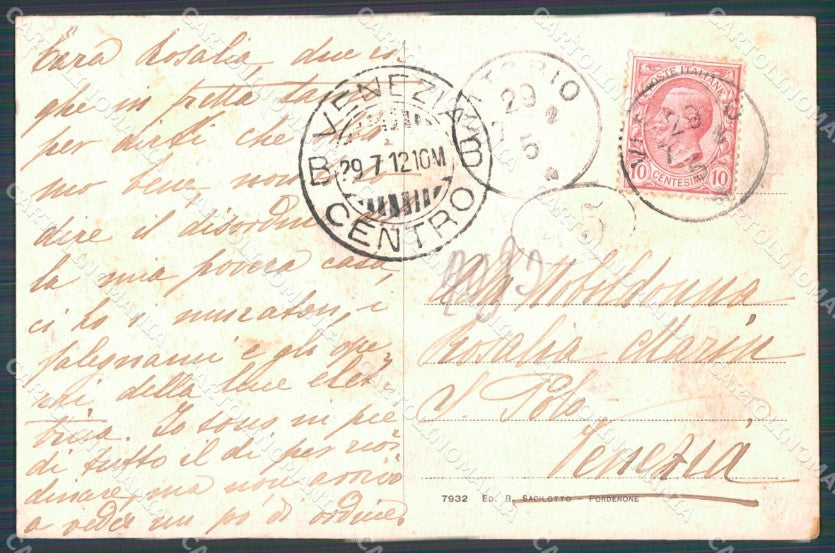 Cara Rosalia, due ri-
ghe in fretta tan
per dirti che
mo bene, non
dire il disordine
la mia povera casa,
ci ho i muratori, i
falegnami e gli ope-
rai della luce elet-
trica. Io sono in pie-
di tutto il dì per rior-
dinare, ma non arrivo
a veder un po' di ordine
VENEZIA
B B
29 7 12 10M
CENTRO
29
5
POSTE ITALIANE
10 CENTESIMI 10
29
7
Alla Nobildonna
Rosalia Marin
S. Polo
Venezia
7932 ED. R. SACILOTTO - PORDENONE
CARTOLINOMANIA